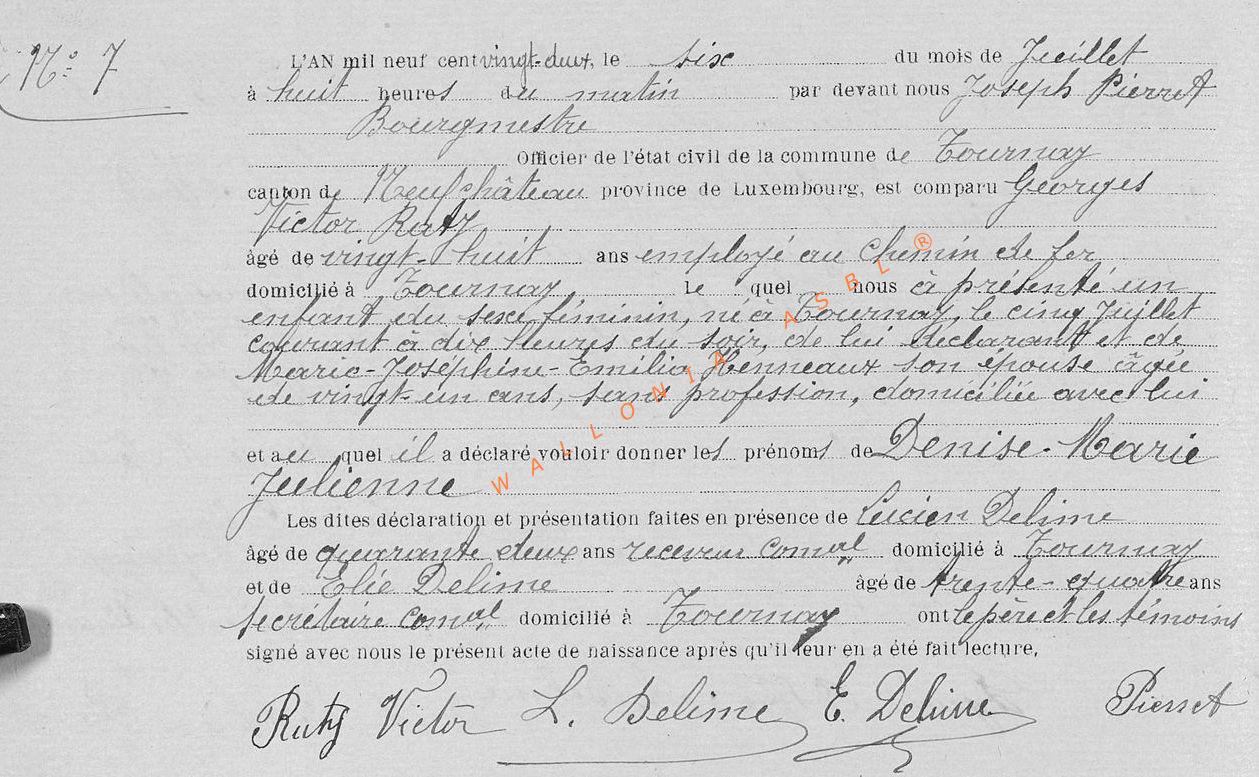 N° 7
L'AN mil neuf cent vingt-deux, le six du mois de Juillet
à huit heures du matin par devant nous Joseph Pierret
Bourgmestre
Officier de l'état civil de la commune de Tournay
canton de Neufchâteau province de Luxembourg, est comparu Georges
Victor Ruty
âgé de vingt-huit ans employé au chemin de fer
domicilié à Tournay, le quel nous à présenté un
enfant du sexe féminin, né à Tournay, le cinq Juillet
courant à dix heures du soir, de lui Déclarant et de
Marie-Joséphine-Emilia Henneaux son épouse âgée
de vingt-un ans, sans profession, domiciliée avec lui
et au quel il a déclaré vouloir donner les prénoms de Denise-Marie
Julienne
Les dites déclaration et présentation faites en présence de Lucien Delime
âgé de quarante deux ans receveur comal domicilié à Tournay
et de Elie Delime âgé de trente-quatre ans
secrétaire comal domicilié à Tournay ont le père et les témoins
signé avec nous le présent acte de naissance après qu'il leur en a été fait lecture,
Ruty Victor L. Delime E. Delime Pierret
WALLONIA ASBL ®